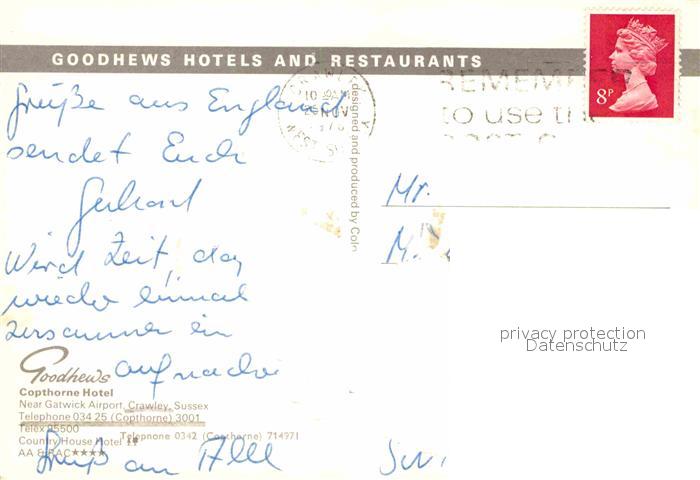 GOODHEWS HOTELS AND RESTAURANTS
8P
CRAWLEY
10 AM
26 NOV
WEST SUSSEX
REMEMBER
to use the
designed and produced by Colo
Grüße aus England
sendet Euch
Gerhard
Wird Zeit, daß
wieder einmal
zusammen ein
aufmachen
Mr.
M.
privacy protection
Datenschutz
Goodhews
Copthorne Hotel
Near Gatwick Airport, Crawley, Sussex
Telephone 034 25 (Copthorne) 3001
Telephone 0342 (Copthorne) 714971
Telex 95500
Country House Hotel
AA & RAC★★★★
Gruß an Alle